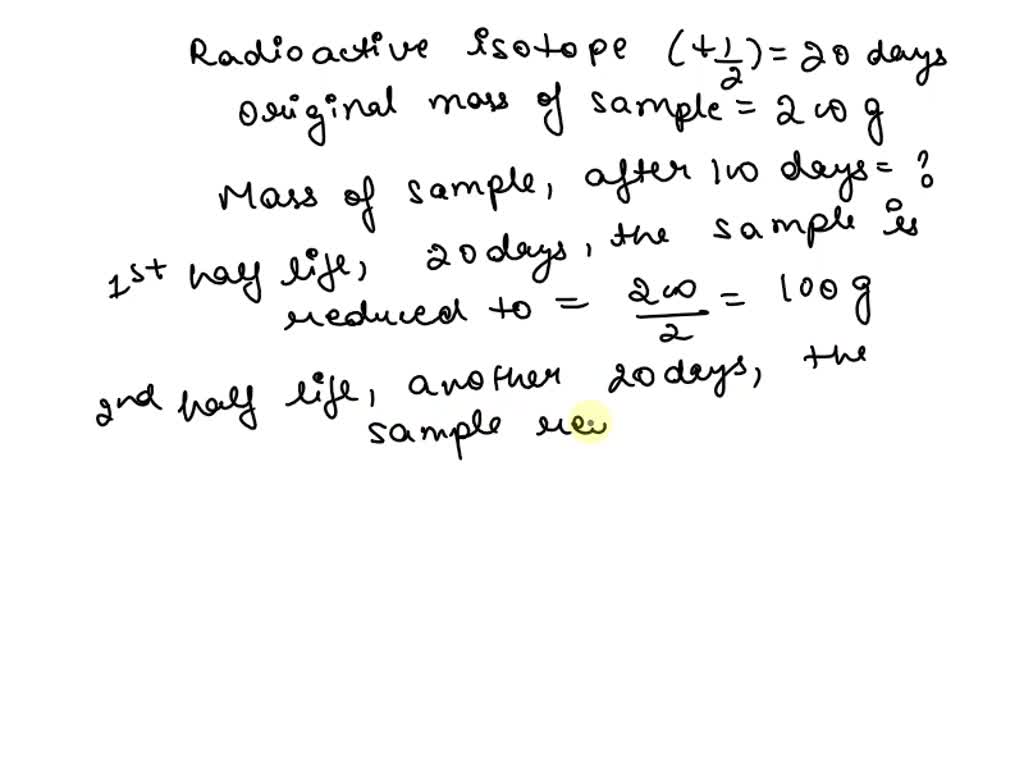 Radioactive isotope (t1/2) = 20 days
Original mass of sample = 200 g
Mass of sample, after 100 days = ?
1st half life, 20 days, the sample is
reduced to = 200/2 = 100 g
2nd half life, another 20 days, the
sample